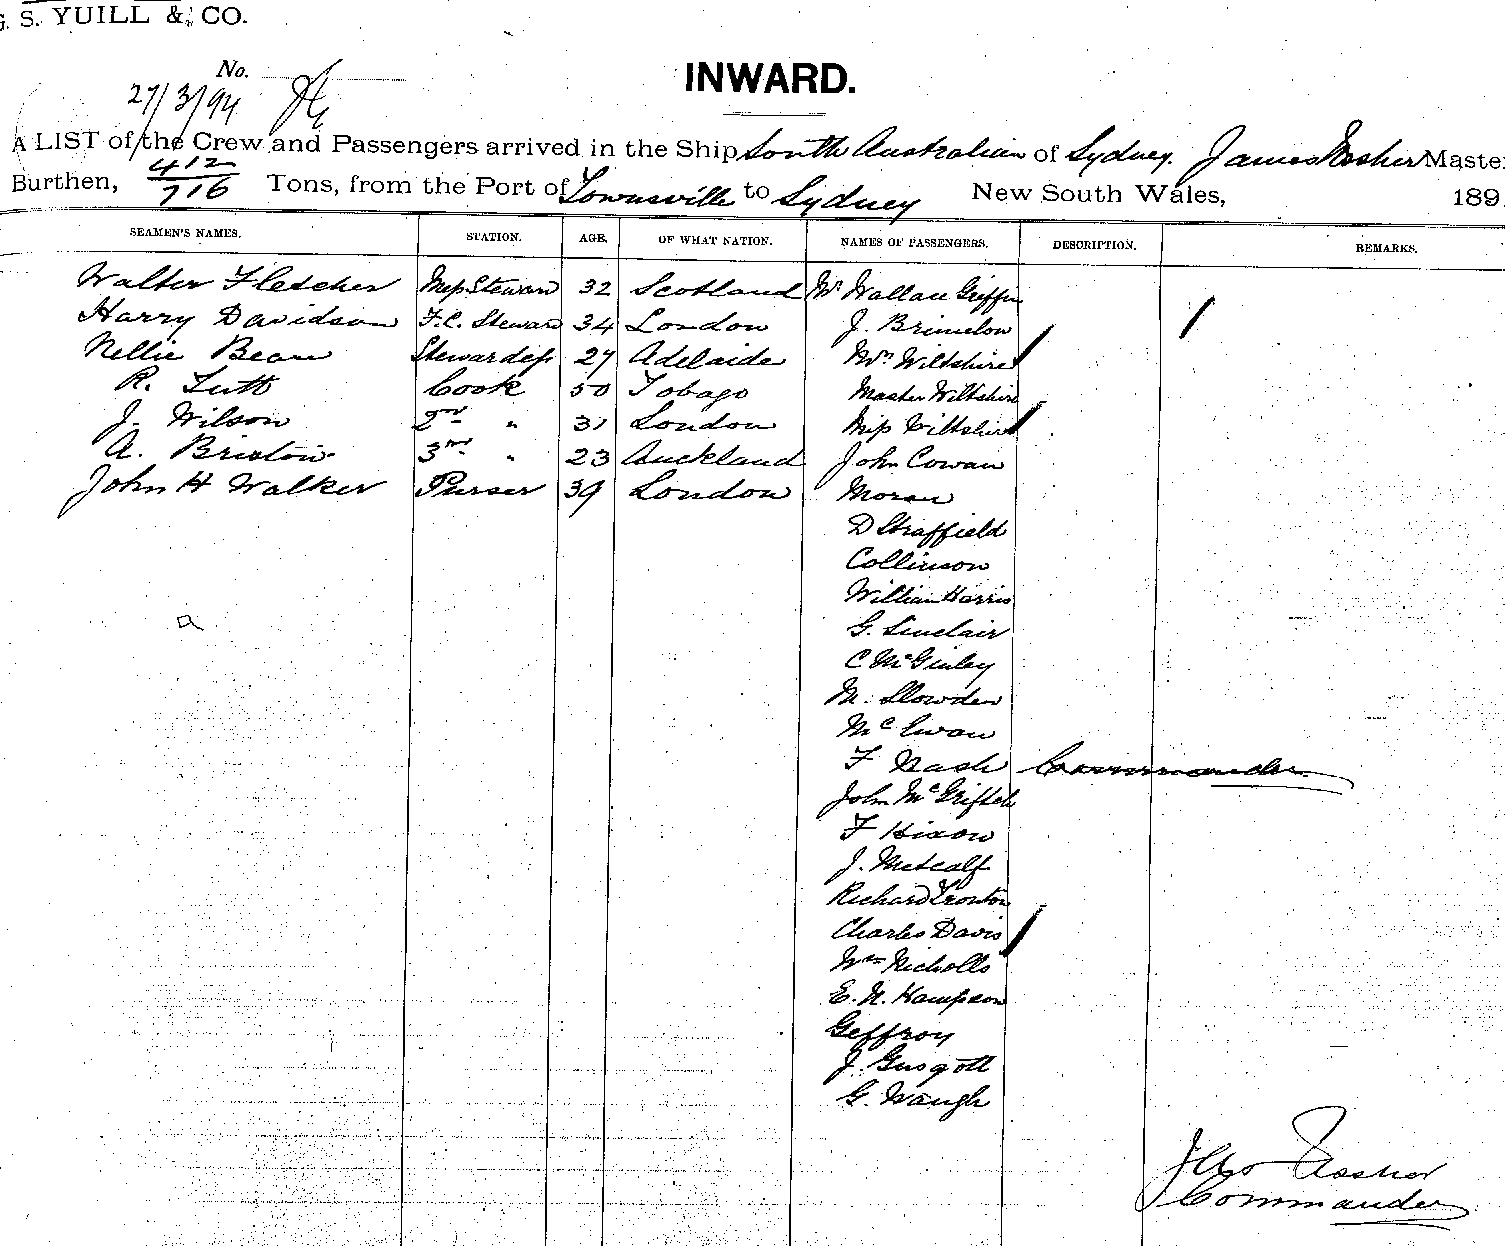 G. S. YUILL & CO.
No.
INWARD.
27/3/94
A LIST of the Crew and Passengers arrived in the Ship South Australian of Sydney. James Master
Burthen, 412/716 Tons, from the Port of Townsville to Sydney New South Wales, 189
SEAMEN'S NAMES. STATION. AGE. OF WHAT NATION. NAMES OF PASSENGERS. DESCRIPTION. REMARKS.
Walter Fletcher Mess Steward 32 Scotland Mr Wallace Griffin
Harry Davidson F.C. Steward 34 London J. Brimelow
Nellie Bean Stewardess 27 Adelaide Mrs Wiltshire
R. Tutt Cook 50 Tobago Master Wiltshire
J. Wilson 2nd " 31 London Miss Wiltshire
A. Brixton 3rd " 23 Auckland John Cowan
John H Walker Purser 39 London Moran
D Straffield
Collinson
William Harris
G. Sinclair
C McGinley
M. Slowden
Mc Ewan
F Nash Commander
John Mc
F Hixon
J. Metcalf
Richard Tronton
Charles Davis
Wm Nicholls
E. N. Hampson
Geffroy
J. Gusgott
G. Waugh
Commander